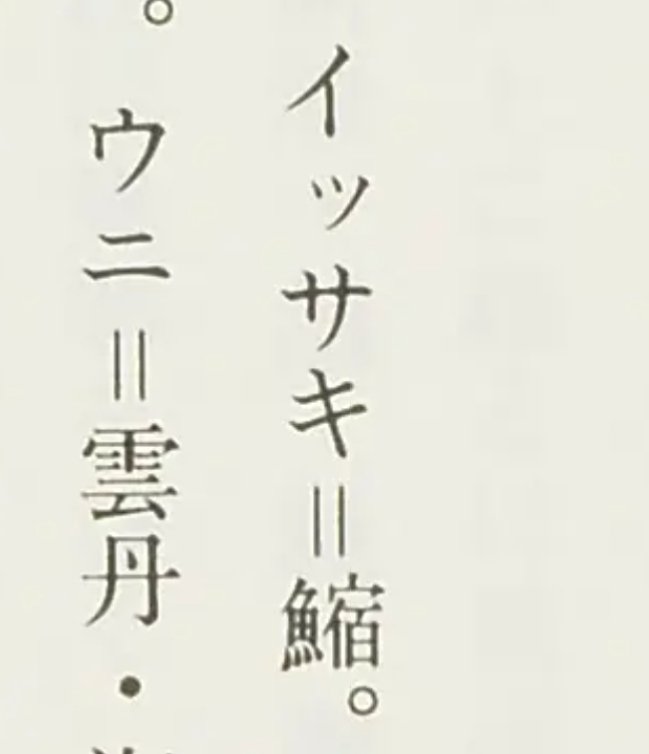 イッサキ=鱐。
。ウニ=雲丹・